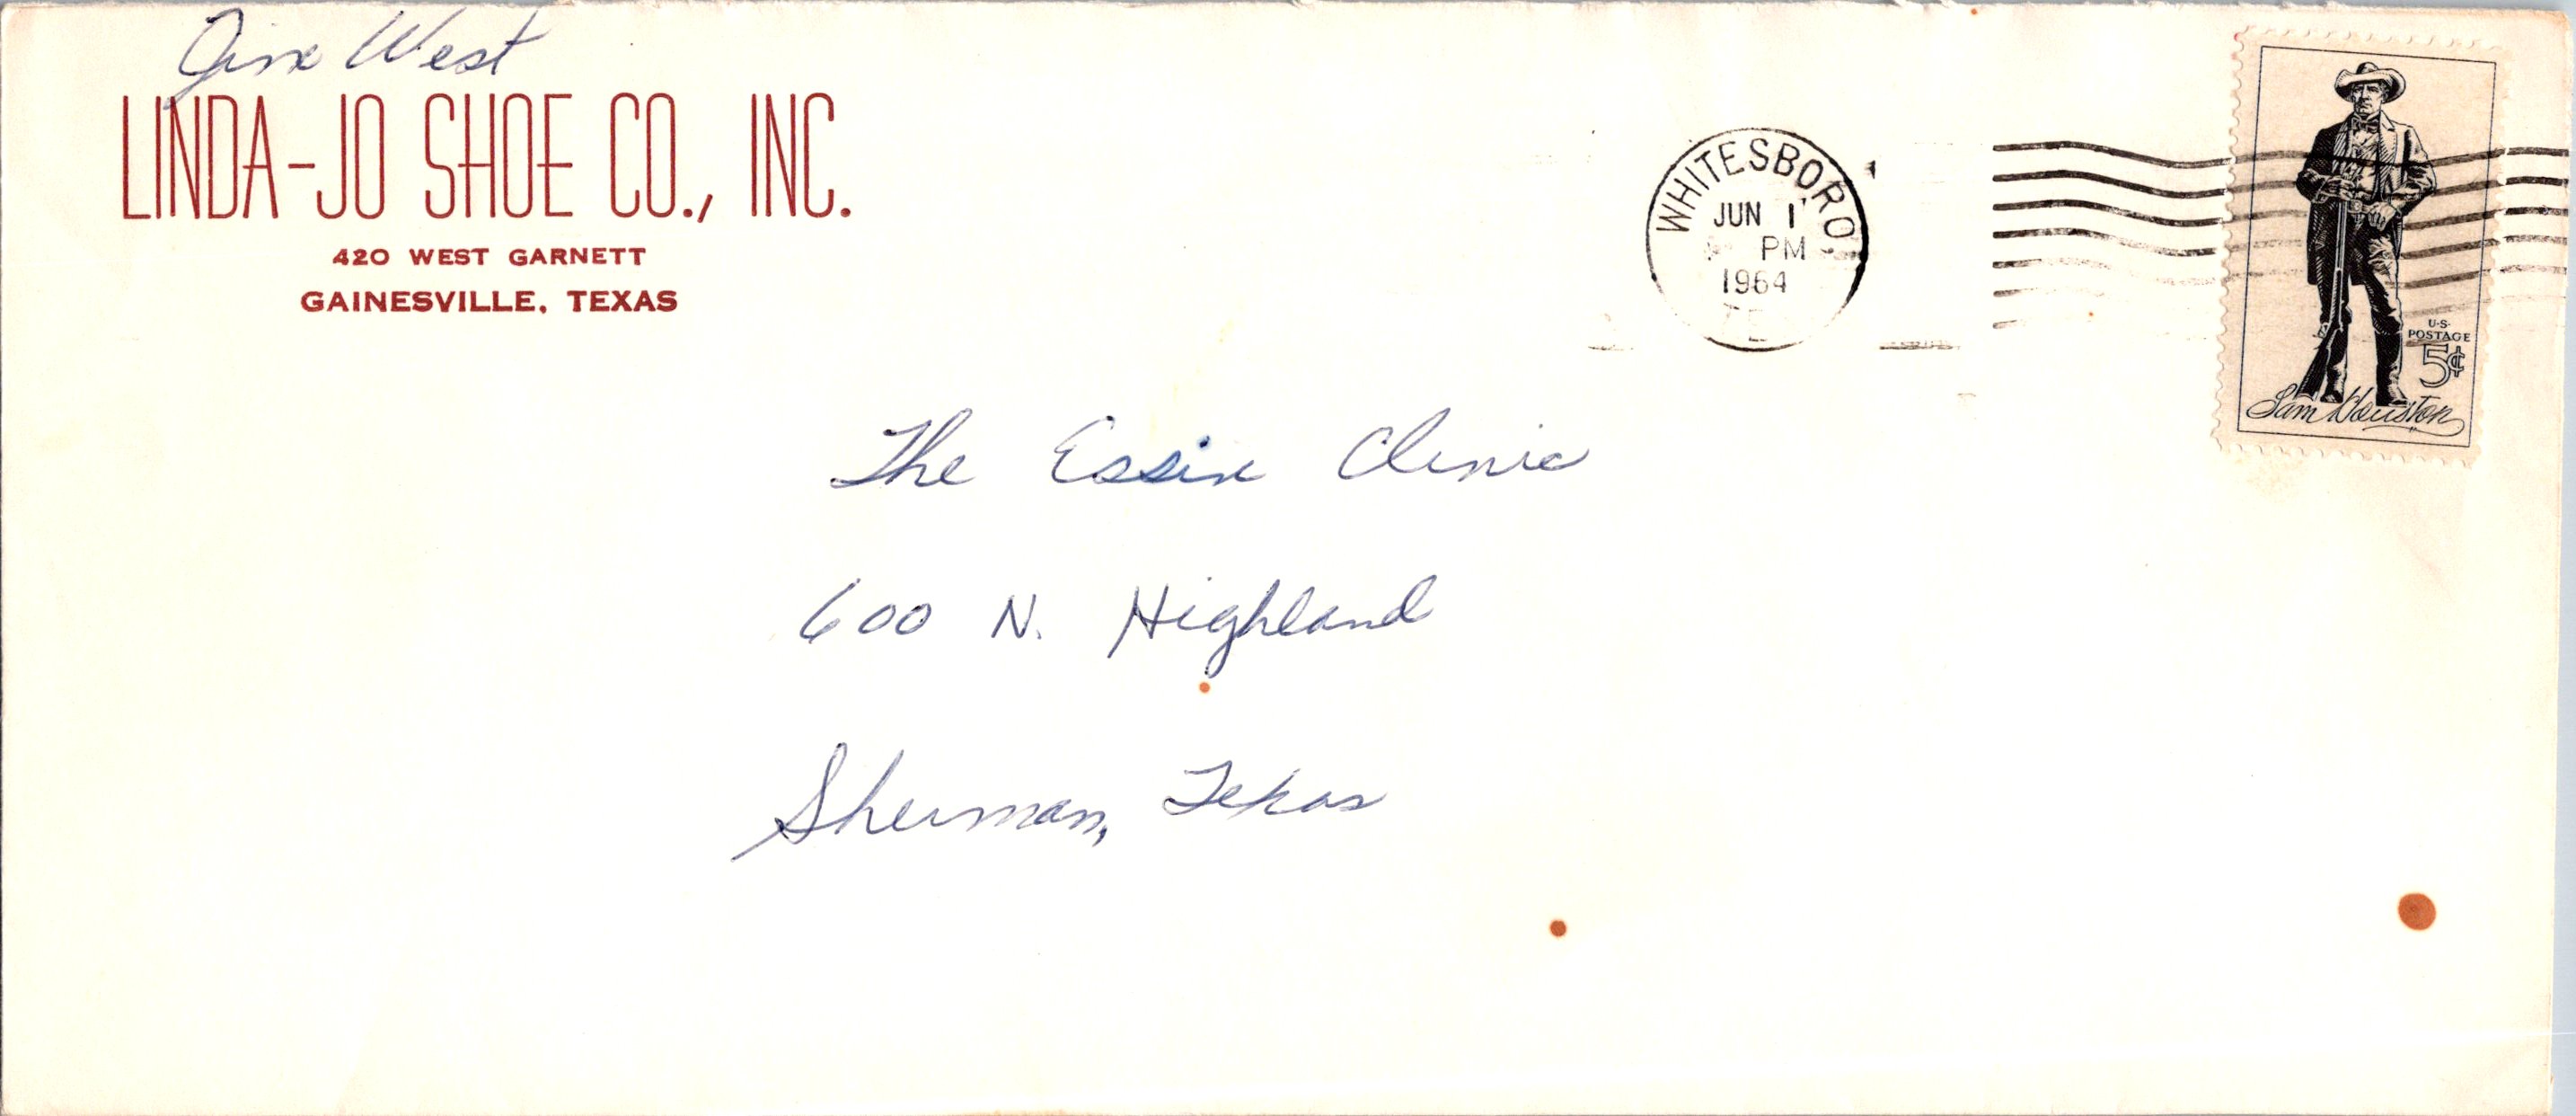 Jim West
LINDA-JO SHOE CO., INC.
420 WEST GARNETT
GAINESVILLE, TEXAS
WHITESBORO,
JUN 1
PM
1964
U.S.
POSTAGE
5¢
Sam Houston
The Essin Clinic
600 N. Highland
Sherman, Texas